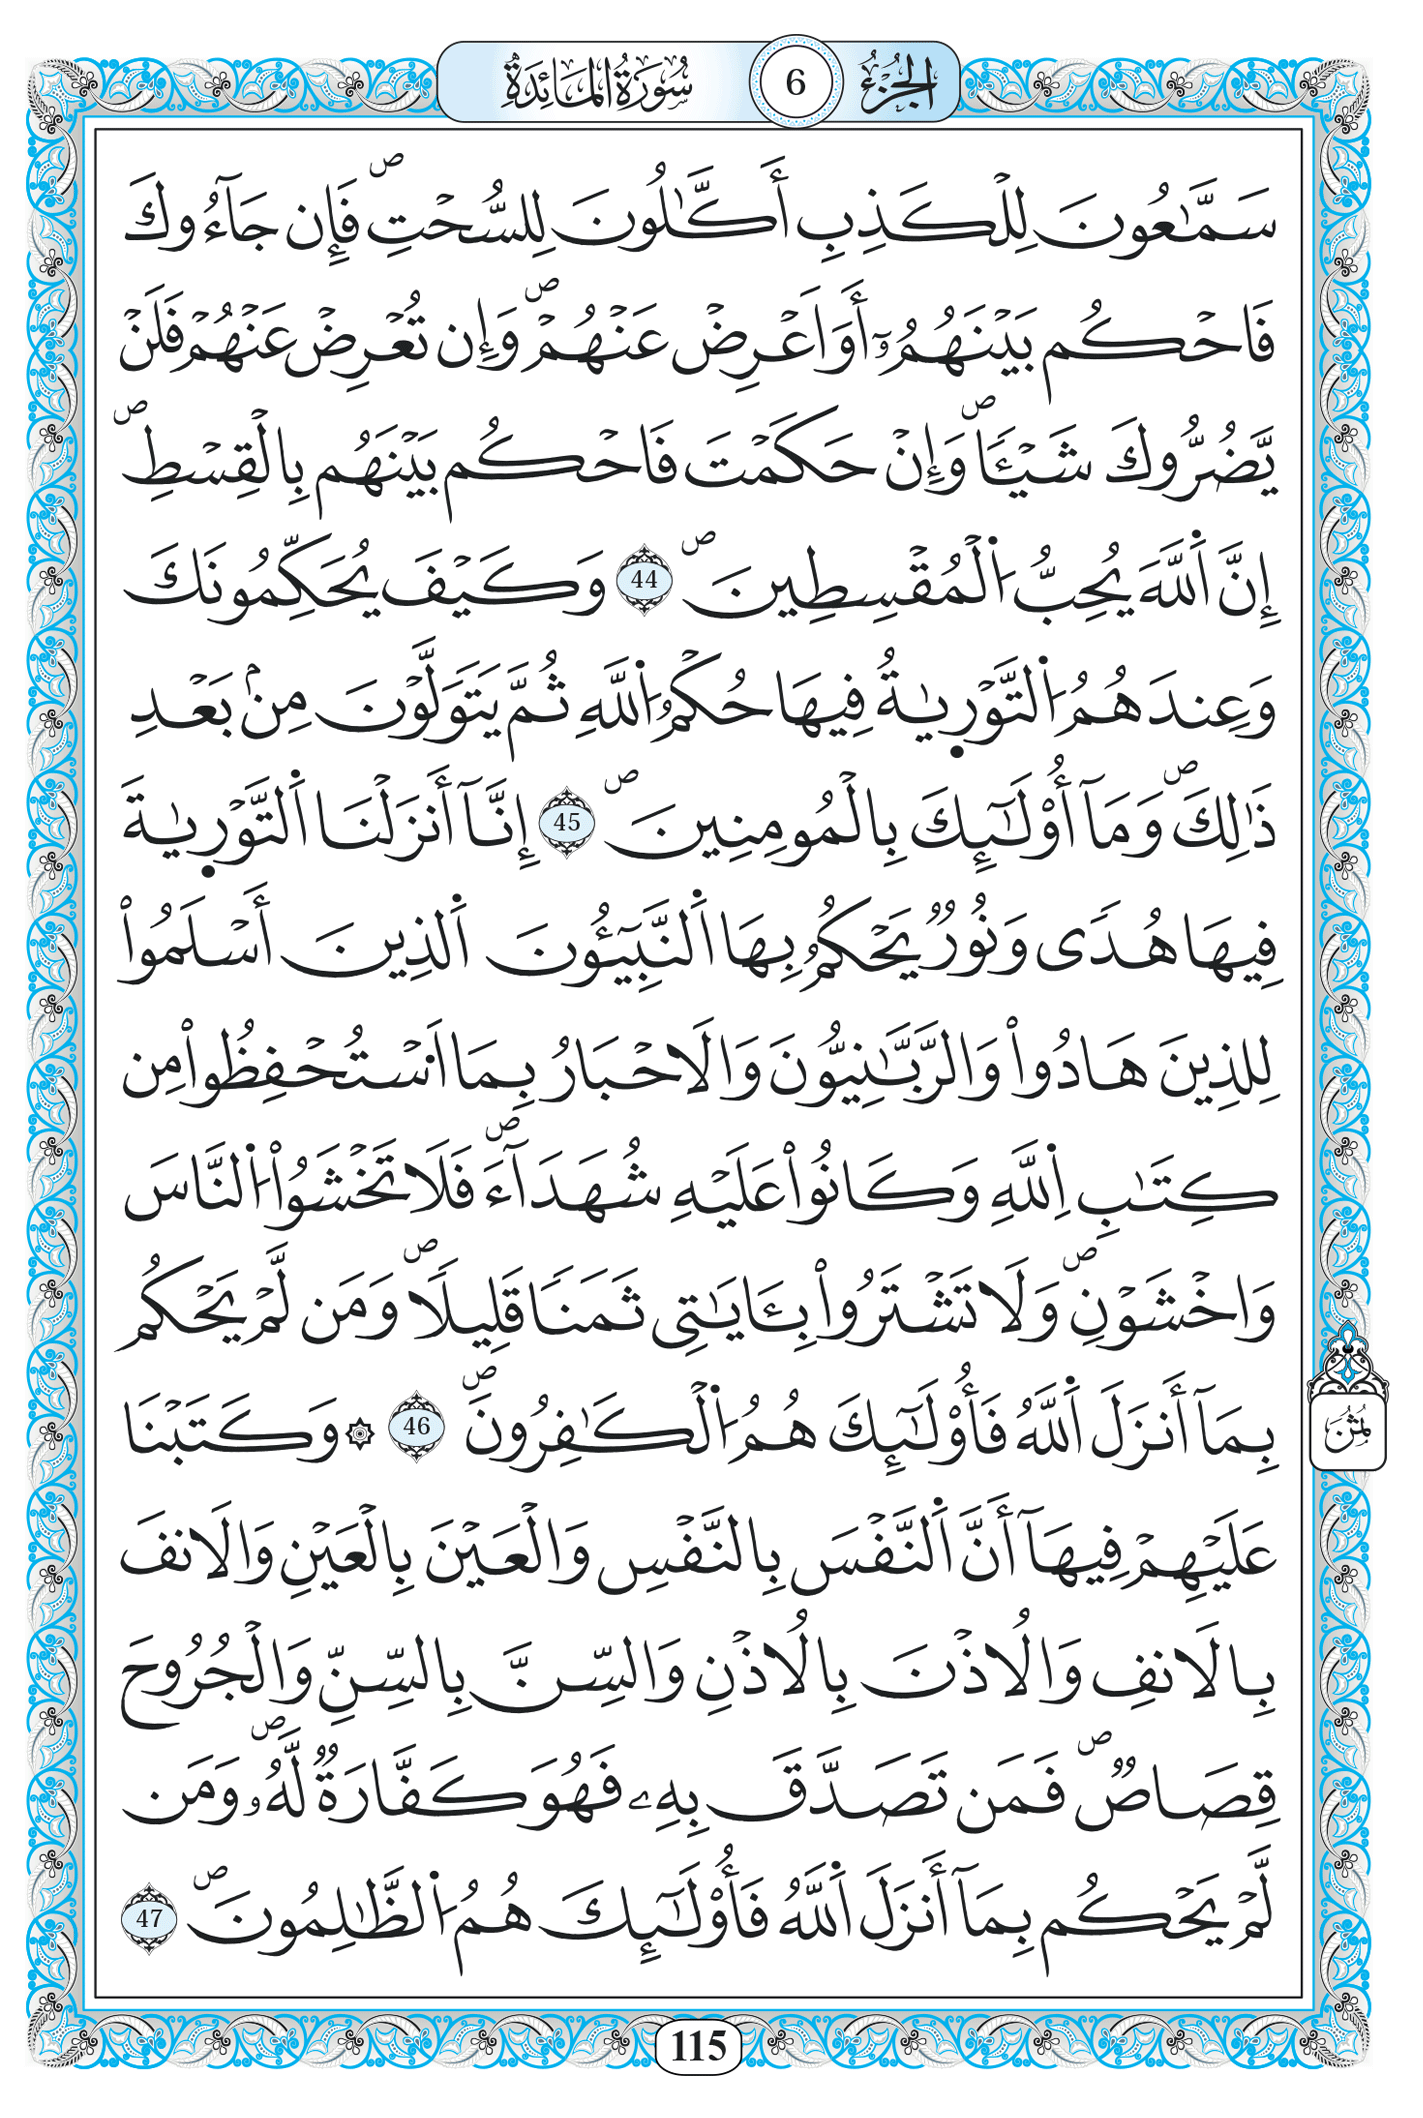 الجزء 6 سورة المائدة
سَمَّٰعُونَ لِلْكَذِبِ أَكَّٰلُونَ لِلسُّحْتِۖ فَإِن جَآءُوكَ
فَاحْكُم بَيْنَهُمُۥٓ أَوَ اَعْرِضْ عَنْهُمْۖ وَإِن تُعْرِضْ عَنْهُمْ فَلَنْ
يَّضُرُّوكَ شَيْـٔاٗۖ وَإِنْ حَكَمْتَ فَاحْكُم بَيْنَهُم بِالْقِسْطِۖ
إِنَّ اَ۬للَّهَ يُحِبُّ اُ۬لْمُقْسِطِينَۖ 44 وَكَيْفَ يُحَكِّمُونَكَ
وَعِندَهُمُ اُ۬لتَّوْر۪يٰةُ فِيهَا حُكْمُ اُ۬للَّهِ ثُمَّ يَتَوَلَّوْنَ مِنۢ بَعْدِ
ذَٰلِكَۖ وَمَآ أُوْلَٰٓئِكَ بِالْمُومِنِينَۖ 45 إِنَّآ أَنزَلْنَا اَ۬لتَّوْر۪يٰةَ
فِيهَا هُدىٗ وَنُورٞ يَحْكُمُ بِهَا اَ۬لنَّبِيٓـُٔونَ اَ۬لذِينَ أَسْلَمُواْ
لِلذِينَ هَادُواْ وَالرَّبَّٰنِيُّونَ وَالَاحْبَارُ بِمَا اَسْتُحْفِظُواْ مِن
كِتَٰبِ اِ۬للَّهِ وَكَانُواْ عَلَيْهِ شُهَدَآءَۖ فَلَا تَخْشَوُاْ اُ۬لنَّاسَ
وَاخْشَوْنِۖ وَلَا تَشْتَرُواْ بِـَٔايَٰتِي ثَمَناٗ قَلِيلاٗۖ وَمَن لَّمْ يَحْكُم
بِمَآ أَنزَلَ اَ۬للَّهُ فَأُوْلَٰٓئِكَ هُمُ اُ۬لْكَٰفِرُونَۖ 46 ۞ وَكَتَبْنَا
عَلَيْهِمْ فِيهَآ أَنَّ اَ۬لنَّفْسَ بِالنَّفْسِ وَالْعَيْنَ بِالْعَيْنِ وَالَانفَ
بِالَانفِ وَالُاذْنَ بِالُاذْنِ وَالسِّنَّ بِالسِّنِّ وَالْجُرُوحَ
قِصَاصٞۖ فَمَن تَصَدَّقَ بِهِۦ فَهُوَ كَفَّارَةٞ لَّهُۥۖ وَمَن
لَّمْ يَحْكُم بِمَآ أَنزَلَ اَ۬للَّهُ فَأُوْلَٰٓئِكَ هُمُ اُ۬لظَّٰلِمُونَۖ 47
ثمن
115